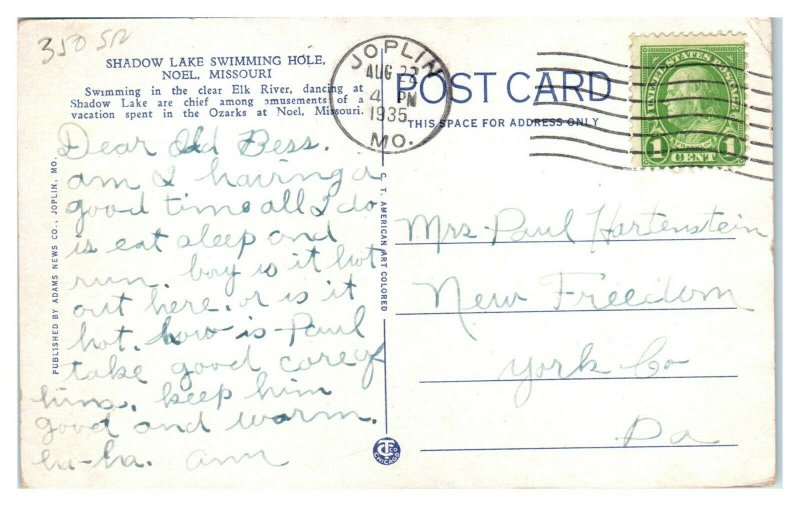 350 SR
SHADOW LAKE SWIMMING HOLE,
NOEL, MISSOURI
Swimming in the clear Elk River, dancing at
Shadow Lake are chief among amusements of a
vacation spent in the Ozarks at Noel, Missouri.
JOPLIN
AUG 22
4 PM
1935
MO.
POST CARD
THIS SPACE FOR ADDRESS ONLY
UNITED STATES POSTAGE
1 CENT 1
Dear Old Bess.
am I having a
good time all I do
is eat sleep and
run. boy is it hot
out here. or is it
hot. how is Paul
take good care of
him. keep him
good and warm.
hu-ha. Ann
Mrs. Paul Hartenstein
New Freedom
York Co
Pa
PUBLISHED BY ADAMS NEWS CO., JOPLIN, MO.
C. T. AMERICAN ART COLORED
CHICAGO